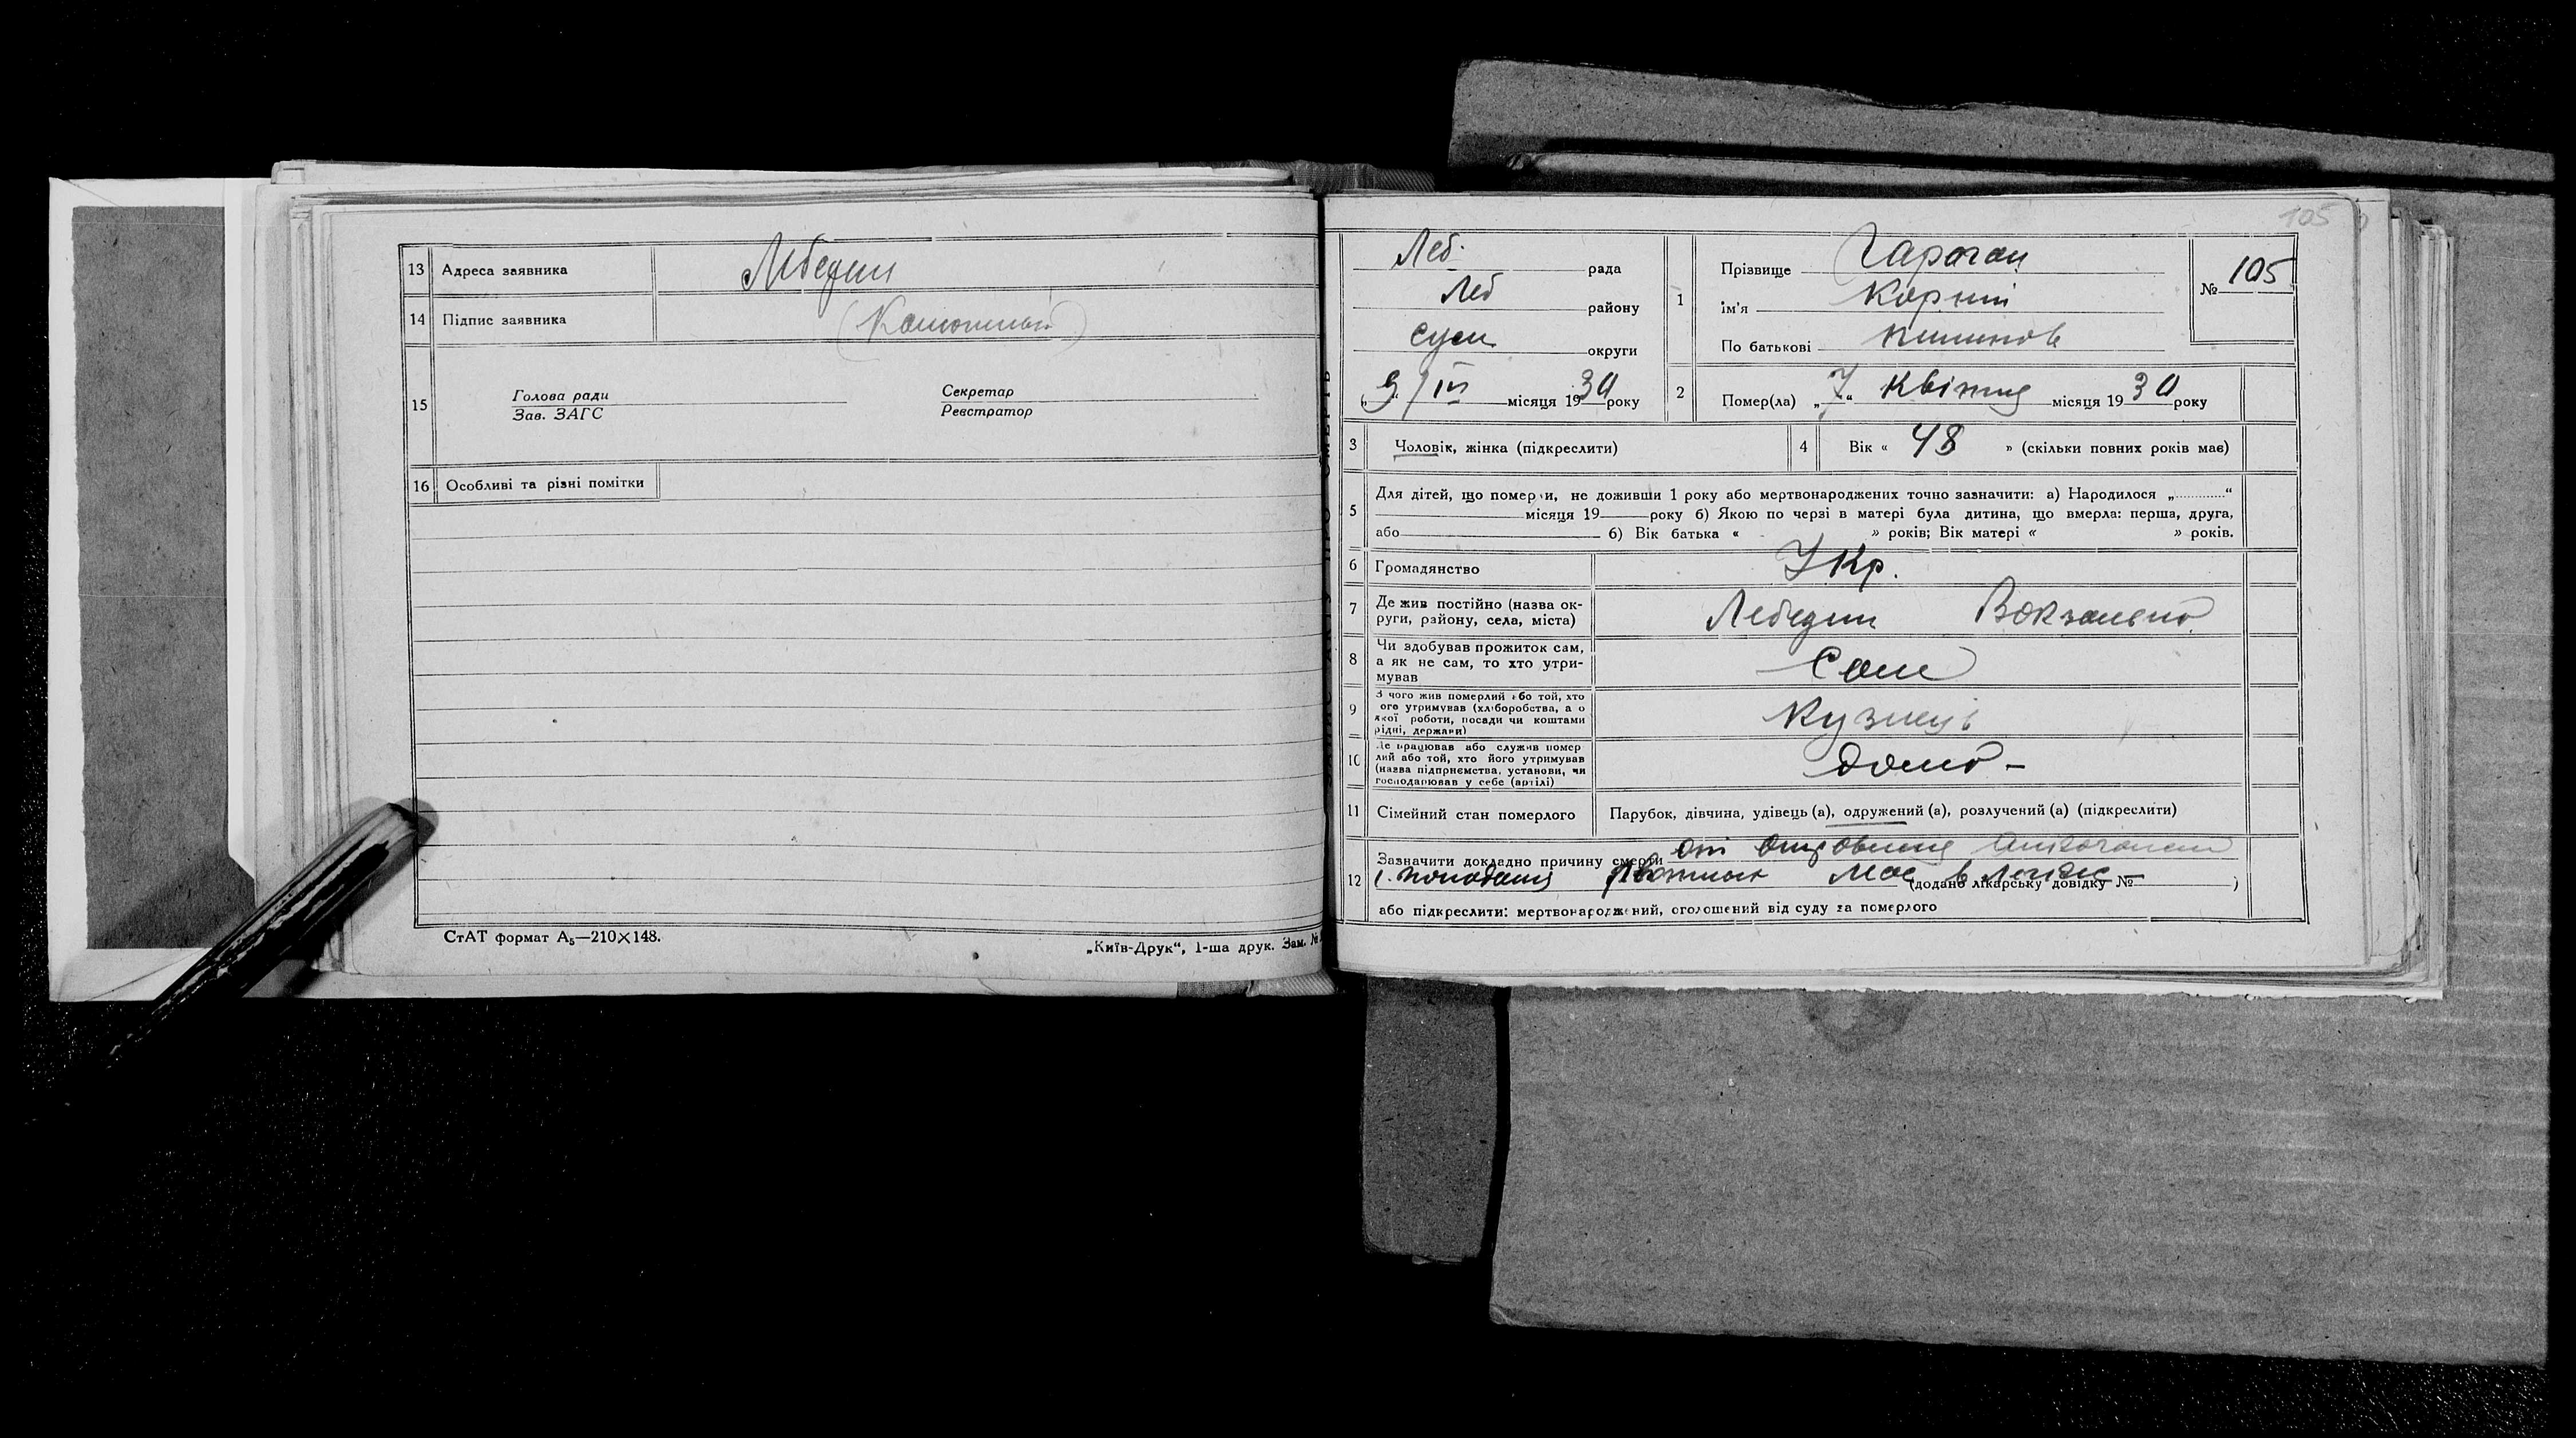 13 Адреса заявника Лебедин
14 Підпис заявника
15 Голова ради Секретар
Зав. ЗАГС Реєстратор
16 Особливі та різні помітки
СтАТ формат А5—210×148.
„Київ-Друк“, 1-ша друк. Зам. №
105
Леб. рада
Леб району
Сум округи
„9“ / IV місяця 1930 року
1 Прізвище
ім'я Корній
По батькові
№ 105
2 Помер(ла) „7“ Квітня місяця 1930 року
3 Чоловік, жінка (підкреслити)
4 Вік « 48 » (скільки повних років має)
5 Для дітей, що померли, не доживши 1 року або мертвонароджених точно зазначити: а) Народилося „ “
місяця 19 року б) Якою по черзі в матері була дитина, що вмерла: перша, друга,
або б) Вік батька « » років; Вік матері « » років.
6 Громадянство Укр.
7 Де жив постійно (назва ок-
руги, району, села, міста) Лебедин
8 Чи здобував прожиток сам,
а як не сам, то хто утри-
мував Сам
9 З чого жив померлий або той, хто
його утримував (хліборобства, а о
якої роботи, посади чи коштами
рідні, держави) Кузнець
10 Де працював або служив помер
лий або той, хто його утримував
(назва підприємства, установи, чи
господарював у себе (артілі) дома
11 Сімейний стан померлого Парубок, дівчина, удівець (а), одружений (а), розлучений (а) (підкреслити)
12 Зазначити докладно причину смерти
(додано лікарську довідку № )
або підкреслити: мертвонароджений, оголошений від суду за померлого